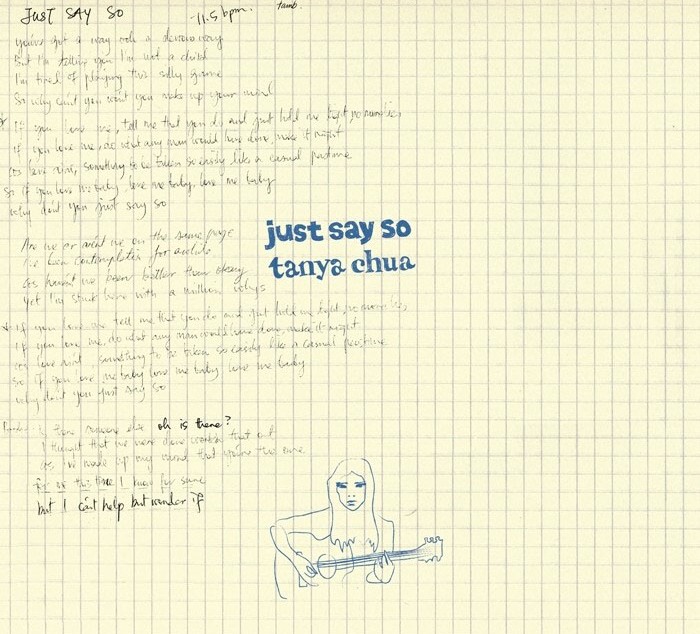 JUST SAY SO
115 bpm.
tamb.
you've got a way
But I'm telling you I'm not a child
I'm tired of playing this silly game
So why can't you won't you make up your mind
If you love me, tell me that you do and just hold me tight, no more lies
if you love me, do what any man would have done, make it right
cos love ain't, something to be taken so easily like a casual pastime
So if you love me baby, love me baby, love me baby
why don't you just say so
just say so
tanya chua
Are we or aren't we on the same page
I've been contemplating for awhile
cos haven't we been better than okay
Yet I'm stuck here with a million whys
If you love me tell me that you do and just hold me tight, no more lies
If you love me, do what any man would have done, make it right
cos love ain't, something to be taken so easily like a casual pastime
so if you love me baby love me baby love me baby
why don't you just say so
someone else oh is there?
I thought that we were done workin' that out
cos I've made up my mind that you're the one
this time I know for sure
but I can't help but wonder if